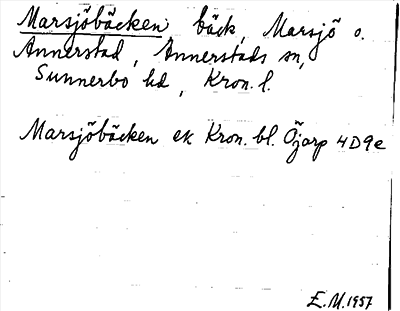 Marsjöbäcken bäck, Marsjö o.
Annerstad, Annerstads sn,
Sunnerbo hd, Kron. l.
Marsjöbäcken ek Kron. bl. Öjarp 4D9e
E.M. 1957